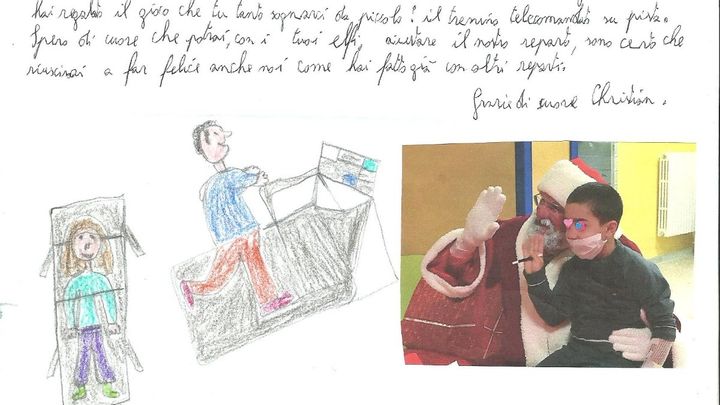 Hai regalato il gioco che tu tanto sognavi da piccolo! il trenino telecomandato su pista.
Spero di cuore che potrai, con i tuoi elfi, aiutare il nostro reparto, sono certo che
riuscirai a far felice anche noi come hai fatto già con altri reparti.
Grazie di cuore Christian.